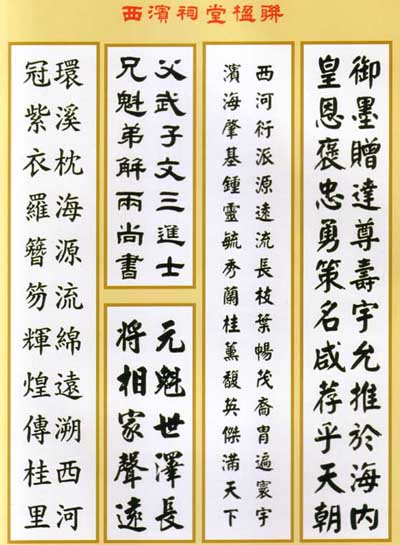 西濱祠堂楹聯
御墨贈達尊壽宇允推於海内
皇恩褒忠勇策名咸荐乎天朝
西河衍派源遠流長枝葉暢茂裔胄遍寰宇
濱海肇基鍾靈毓秀蘭桂薰馥英傑滿天下
父武子文三進士
兄魁弟解兩尚書
元魁世澤長
將相家聲遠
環溪枕海源流綿遠溯西河
冠紫衣羅簪笏輝煌傳桂里